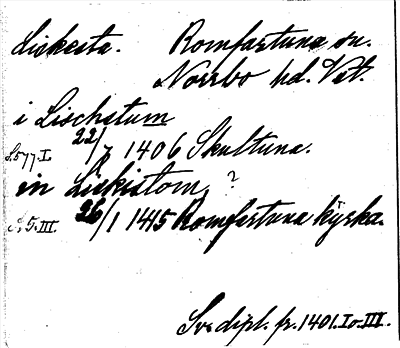 Liskesta. Romfartuna sn.
Norrbo hd. Vstm.
i Lischstum
S.577.I. 22/7 1406 Skultuna.
in Liskistom ?
S.5.III. 26/1 1415 Romfartuna kyrka.
Sv. dipl. fr. 1401. I o. III.